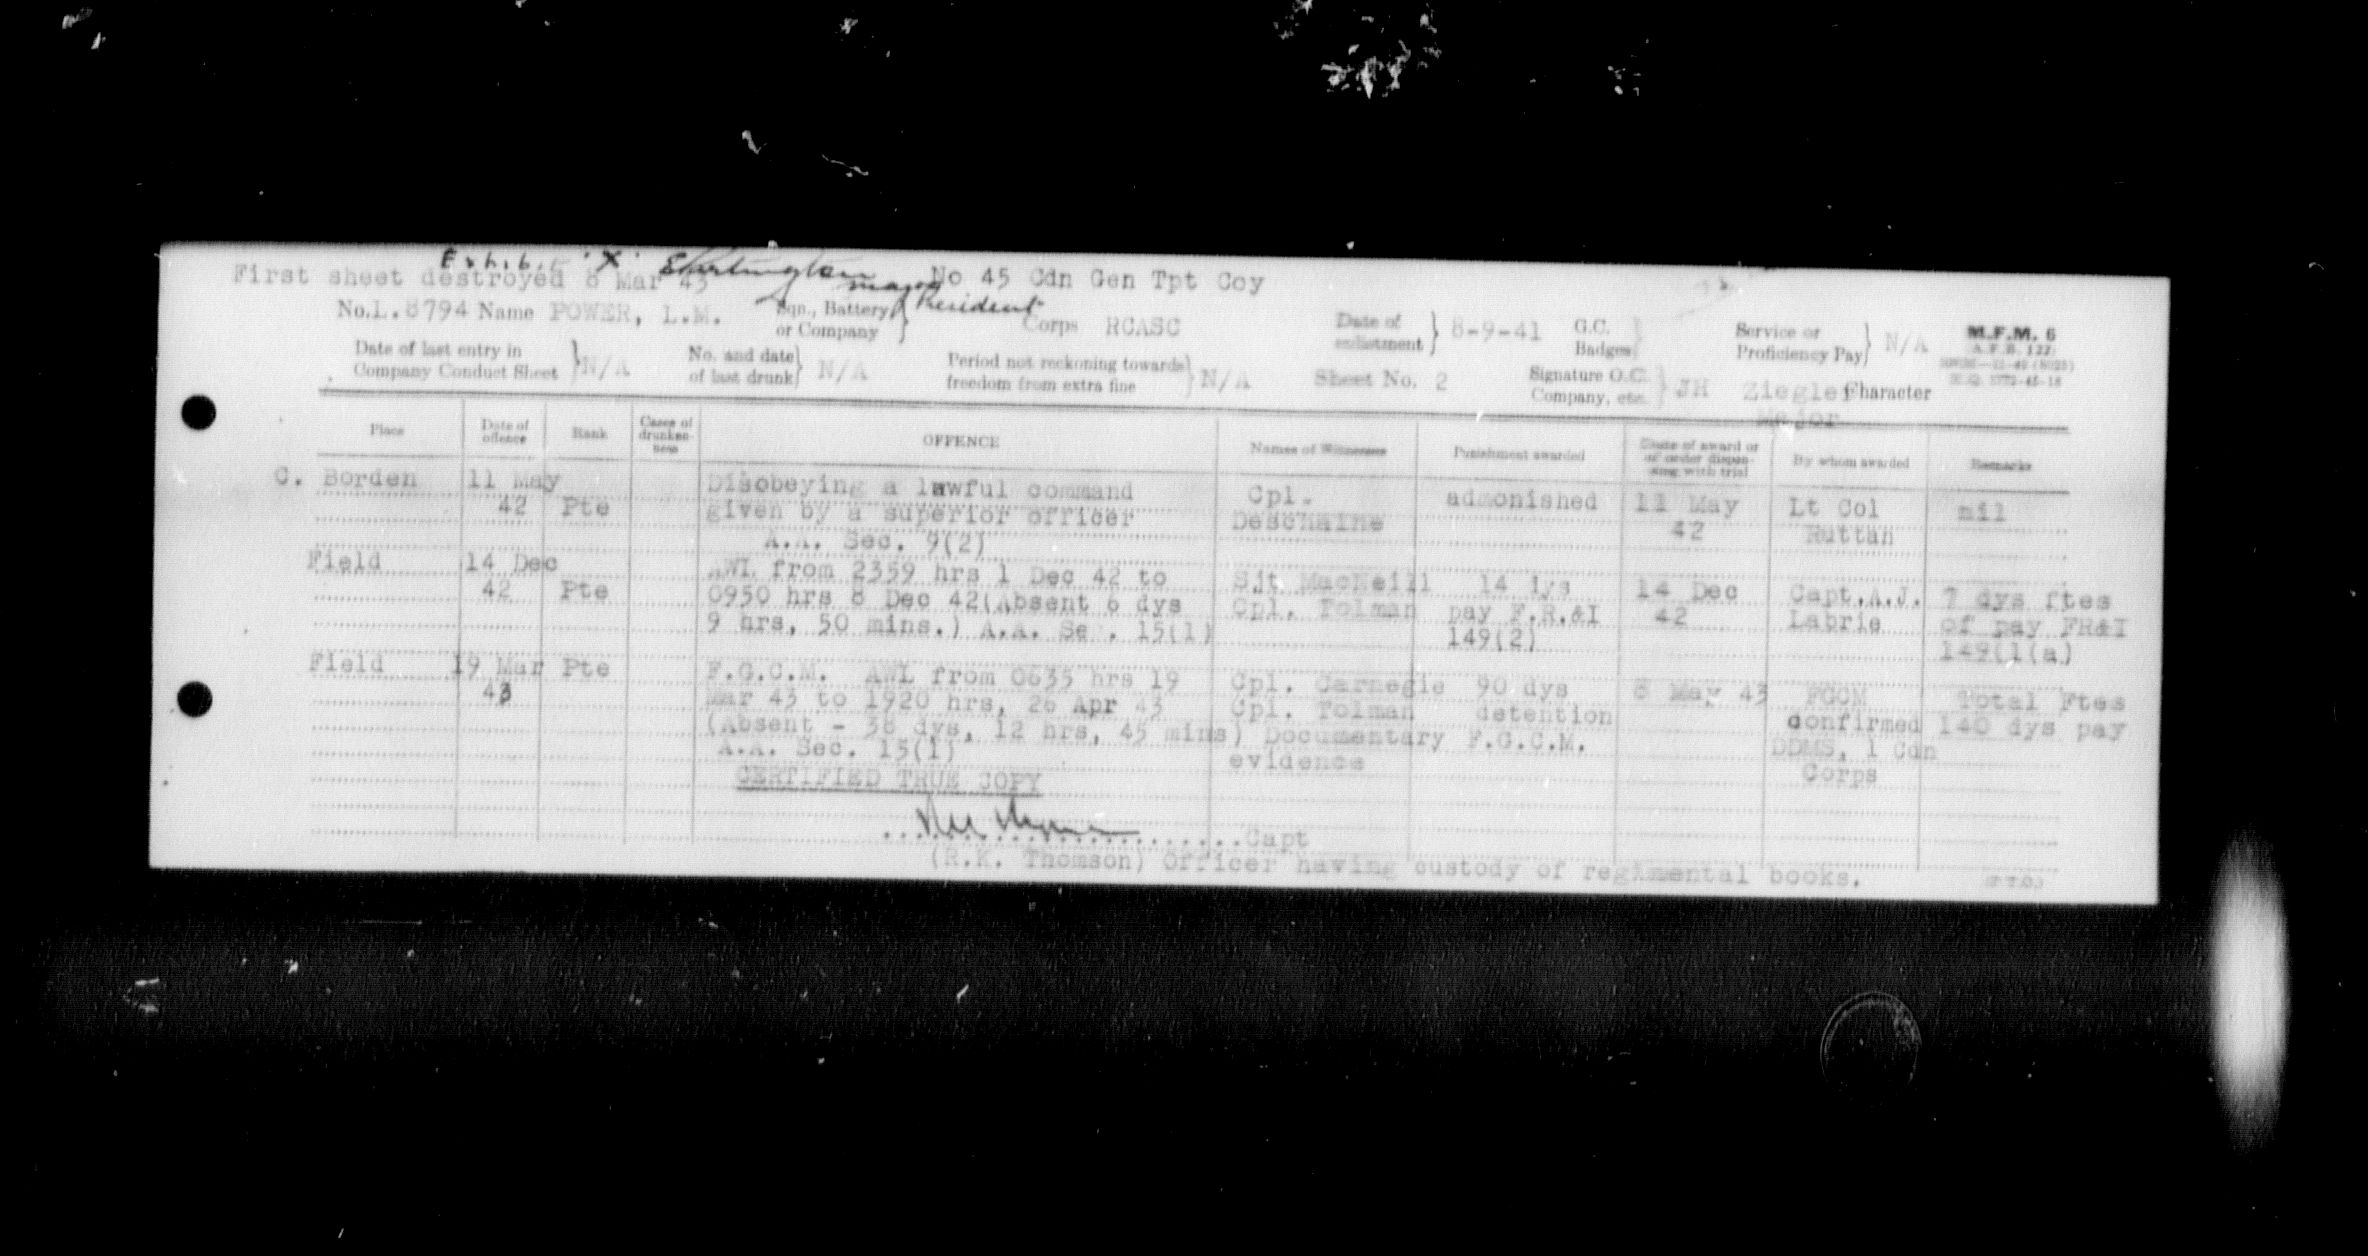 Exhibit "X"
First sheet destroyed 8 Mar 43 No 45 Cdn Gen Tpt Coy
President
No. L.8794 Name POWER, L.M. Sqn., Battery or Company Corps RCASC Date of enlistment 8-9-41 G.C. Badges Service or Proficiency Pay N/A M.F.M. 6
A.F.B. 122
Date of last entry in Company Conduct Sheet N/A No. and date of last drunk N/A Period not reckoning towards freedom from extra fine N/A Sheet No. 2 Signature O.C. Company, etc. JH Ziegler Major Character
Place Date of offence Rank Cases of drunkenness OFFENCE Names of Witnesses Punishment awarded Date of award or of order dispensing with trial By whom awarded Remarks
C. Borden 11 May Disobeying a lawful command Cpl. admonished 11 May Lt Col nil
42 Pte given by a superior officer Deschaine 42 Ruttan
A.A. Sec. 9(2)
Field 14 Dec AWL from 2359 hrs 1 Dec 42 to Sjt MacNeill 14 dys 14 Dec Capt.A.J. 7 dys ftes
42 Pte 0950 hrs 8 Dec 42(Absent 6 dys Cpl. Tolman pay F.R.&I 42 Labrie of pay FR&I
9 hrs, 50 mins.) A.A. Sec. 15(1) 149(2) 149(1(a)
Field 19 Mar Pte F.G.C.M. AWL from 0635 hrs 19 Cpl. Carnegie 90 dys 8 May 43 FGCM Total Ftes
43 Mar 43 to 1920 hrs, 26 Apr 43 Cpl. Tolman detention confirmed 140 dys pay
(Absent - 38 dys, 12 hrs, 45 mins) Documentary F.G.C.M. DDMS, 1 Cdn
A.A. Sec. 15(1) evidence Corps
CERTIFIED TRUE COPY
Capt
(R.K. Thomson) Officer having custody of regimental books.